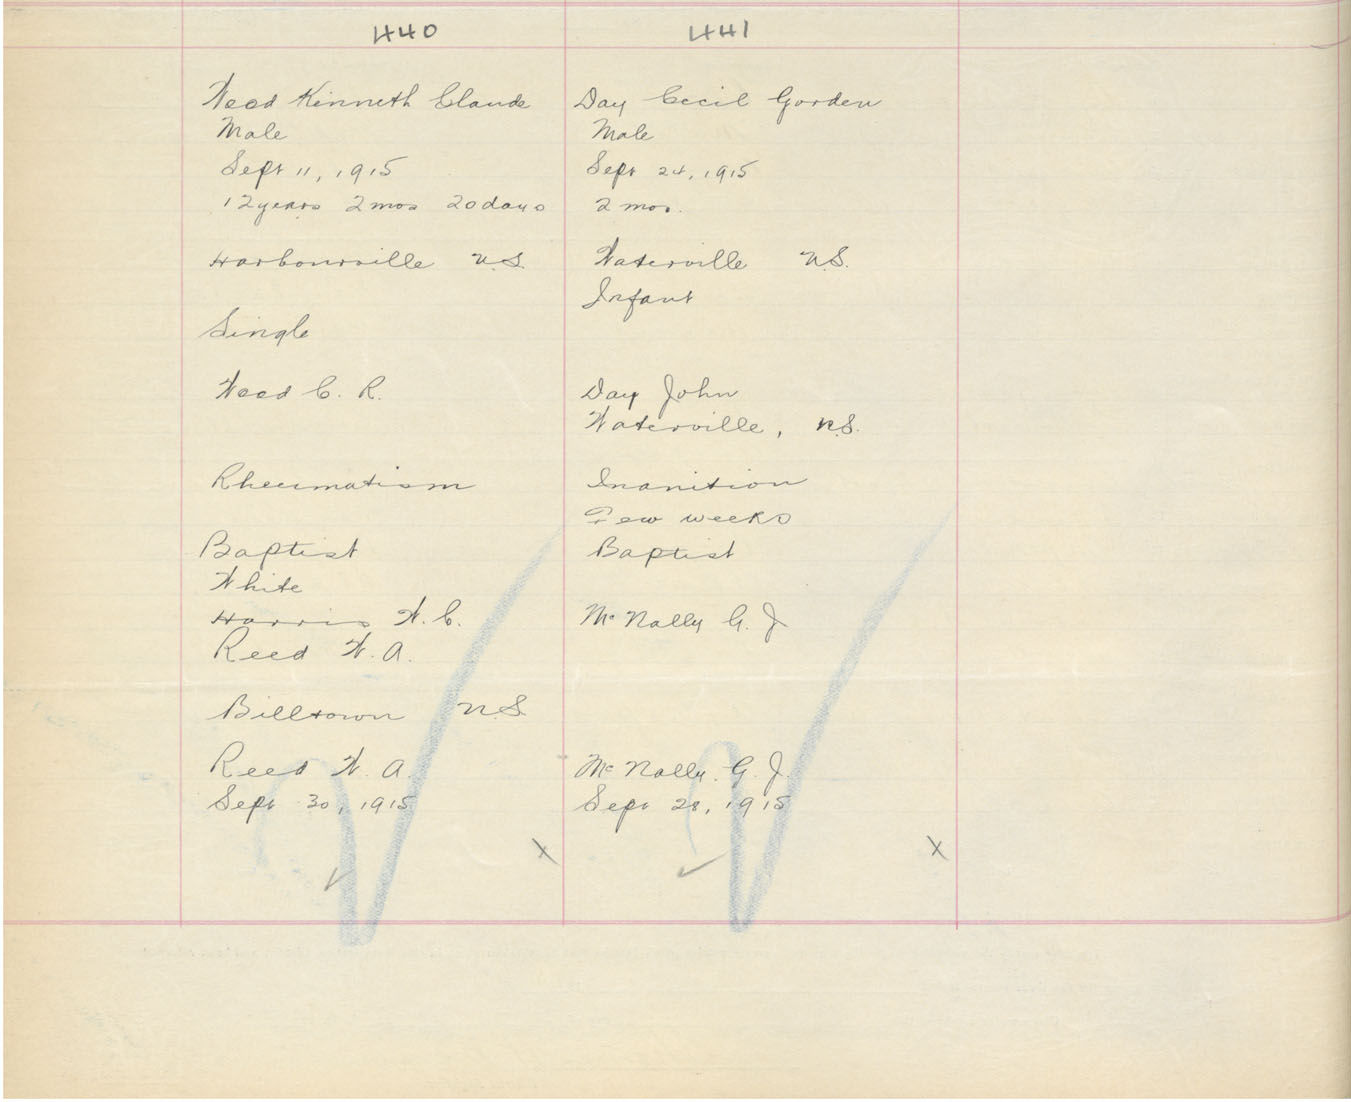 440
Wood Kenneth Claude
Male
Sept 11, 1915
12 years 2 mos 20 days
Harbourville N.S.
Single
Wood C. R.
Rheumatism
Baptist
White
Harris W. C.
Reed W. A.
Billtown N.S.
Reed W. A.
Sept 30, 1915
X
441
Day Cecil Gorden
Male
Sept 24, 1915
2 mos.
Waterville N.S.
Infant
Day John
Waterville, N.S.
Inanition
Few weeks
Baptist
McNally G. J.
McNally G. J.
Sept 28, 1915
X